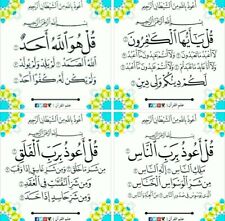 أعوذ بالله من الشيطان الرجيم
بسم الله الرحمن الرحيم
قُلْ هُوَ اللَّهُ أَحَدٌ
اللَّهُ الصَّمَدُ لَمْ يَلِدْ وَلَمْ يُولَدْ
وَلَمْ يَكُن لَّهُ كُفُوًا أَحَدٌ
أعوذ بالله من الشيطان الرجيم
بسم الله الرحمن الرحيم
قُلْ يَا أَيُّهَا الْكَافِرُونَ
لَا أَعْبُدُ مَا تَعْبُدُونَ وَلَا أَنتُمْ عَابِدُونَ
مَا أَعْبُدُ وَلَا أَنَا عَابِدٌ مَّا عَبَدتُّمْ وَلَا أَنتُمْ عَابِدُونَ مَا أَعْبُدُ
لَكُمْ دِينُكُمْ وَلِيَ دِينِ
أعوذ بالله من الشيطان الرجيم
بسم الله الرحمن الرحيم
قُلْ أَعُوذُ بِرَبِّ الْفَلَقِ
مِن شَرِّ مَا خَلَقَ وَمِن شَرِّ غَاسِقٍ إِذَا وَقَبَ
وَمِن شَرِّ النَّفَّاثَاتِ فِي الْعُقَدِ
وَمِن شَرِّ حَاسِدٍ إِذَا حَسَدَ
أعوذ بالله من الشيطان الرجيم
بسم الله الرحمن الرحيم
قُلْ أَعُوذُ بِرَبِّ النَّاسِ
مَلِكِ النَّاسِ إِلَٰهِ النَّاسِ
مِن شَرِّ الْوَسْوَاسِ الْخَنَّاسِ